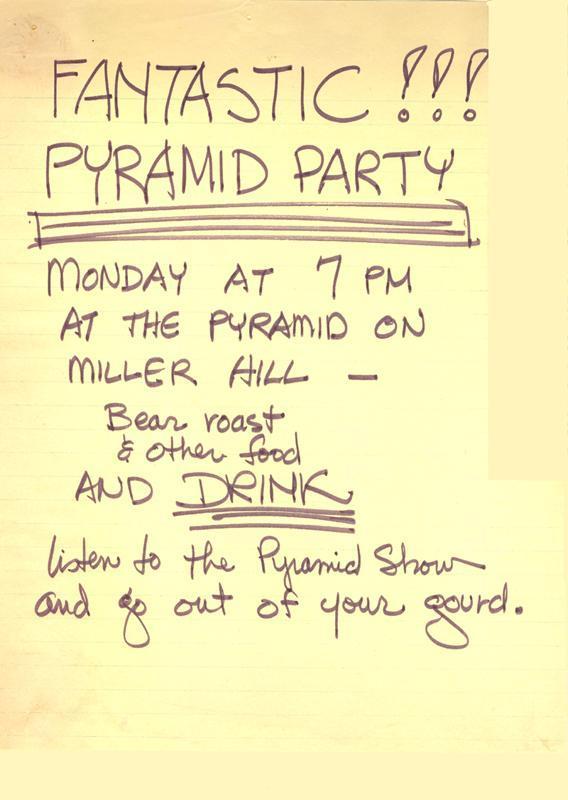 FANTASTIC !!!
PYRAMID PARTY
MONDAY AT 7 PM
AT THE PYRAMID ON
MILLER HILL —
Bear roast
& other food
AND DRINK
listen to the Pyramid Show
and go out of your gourd.